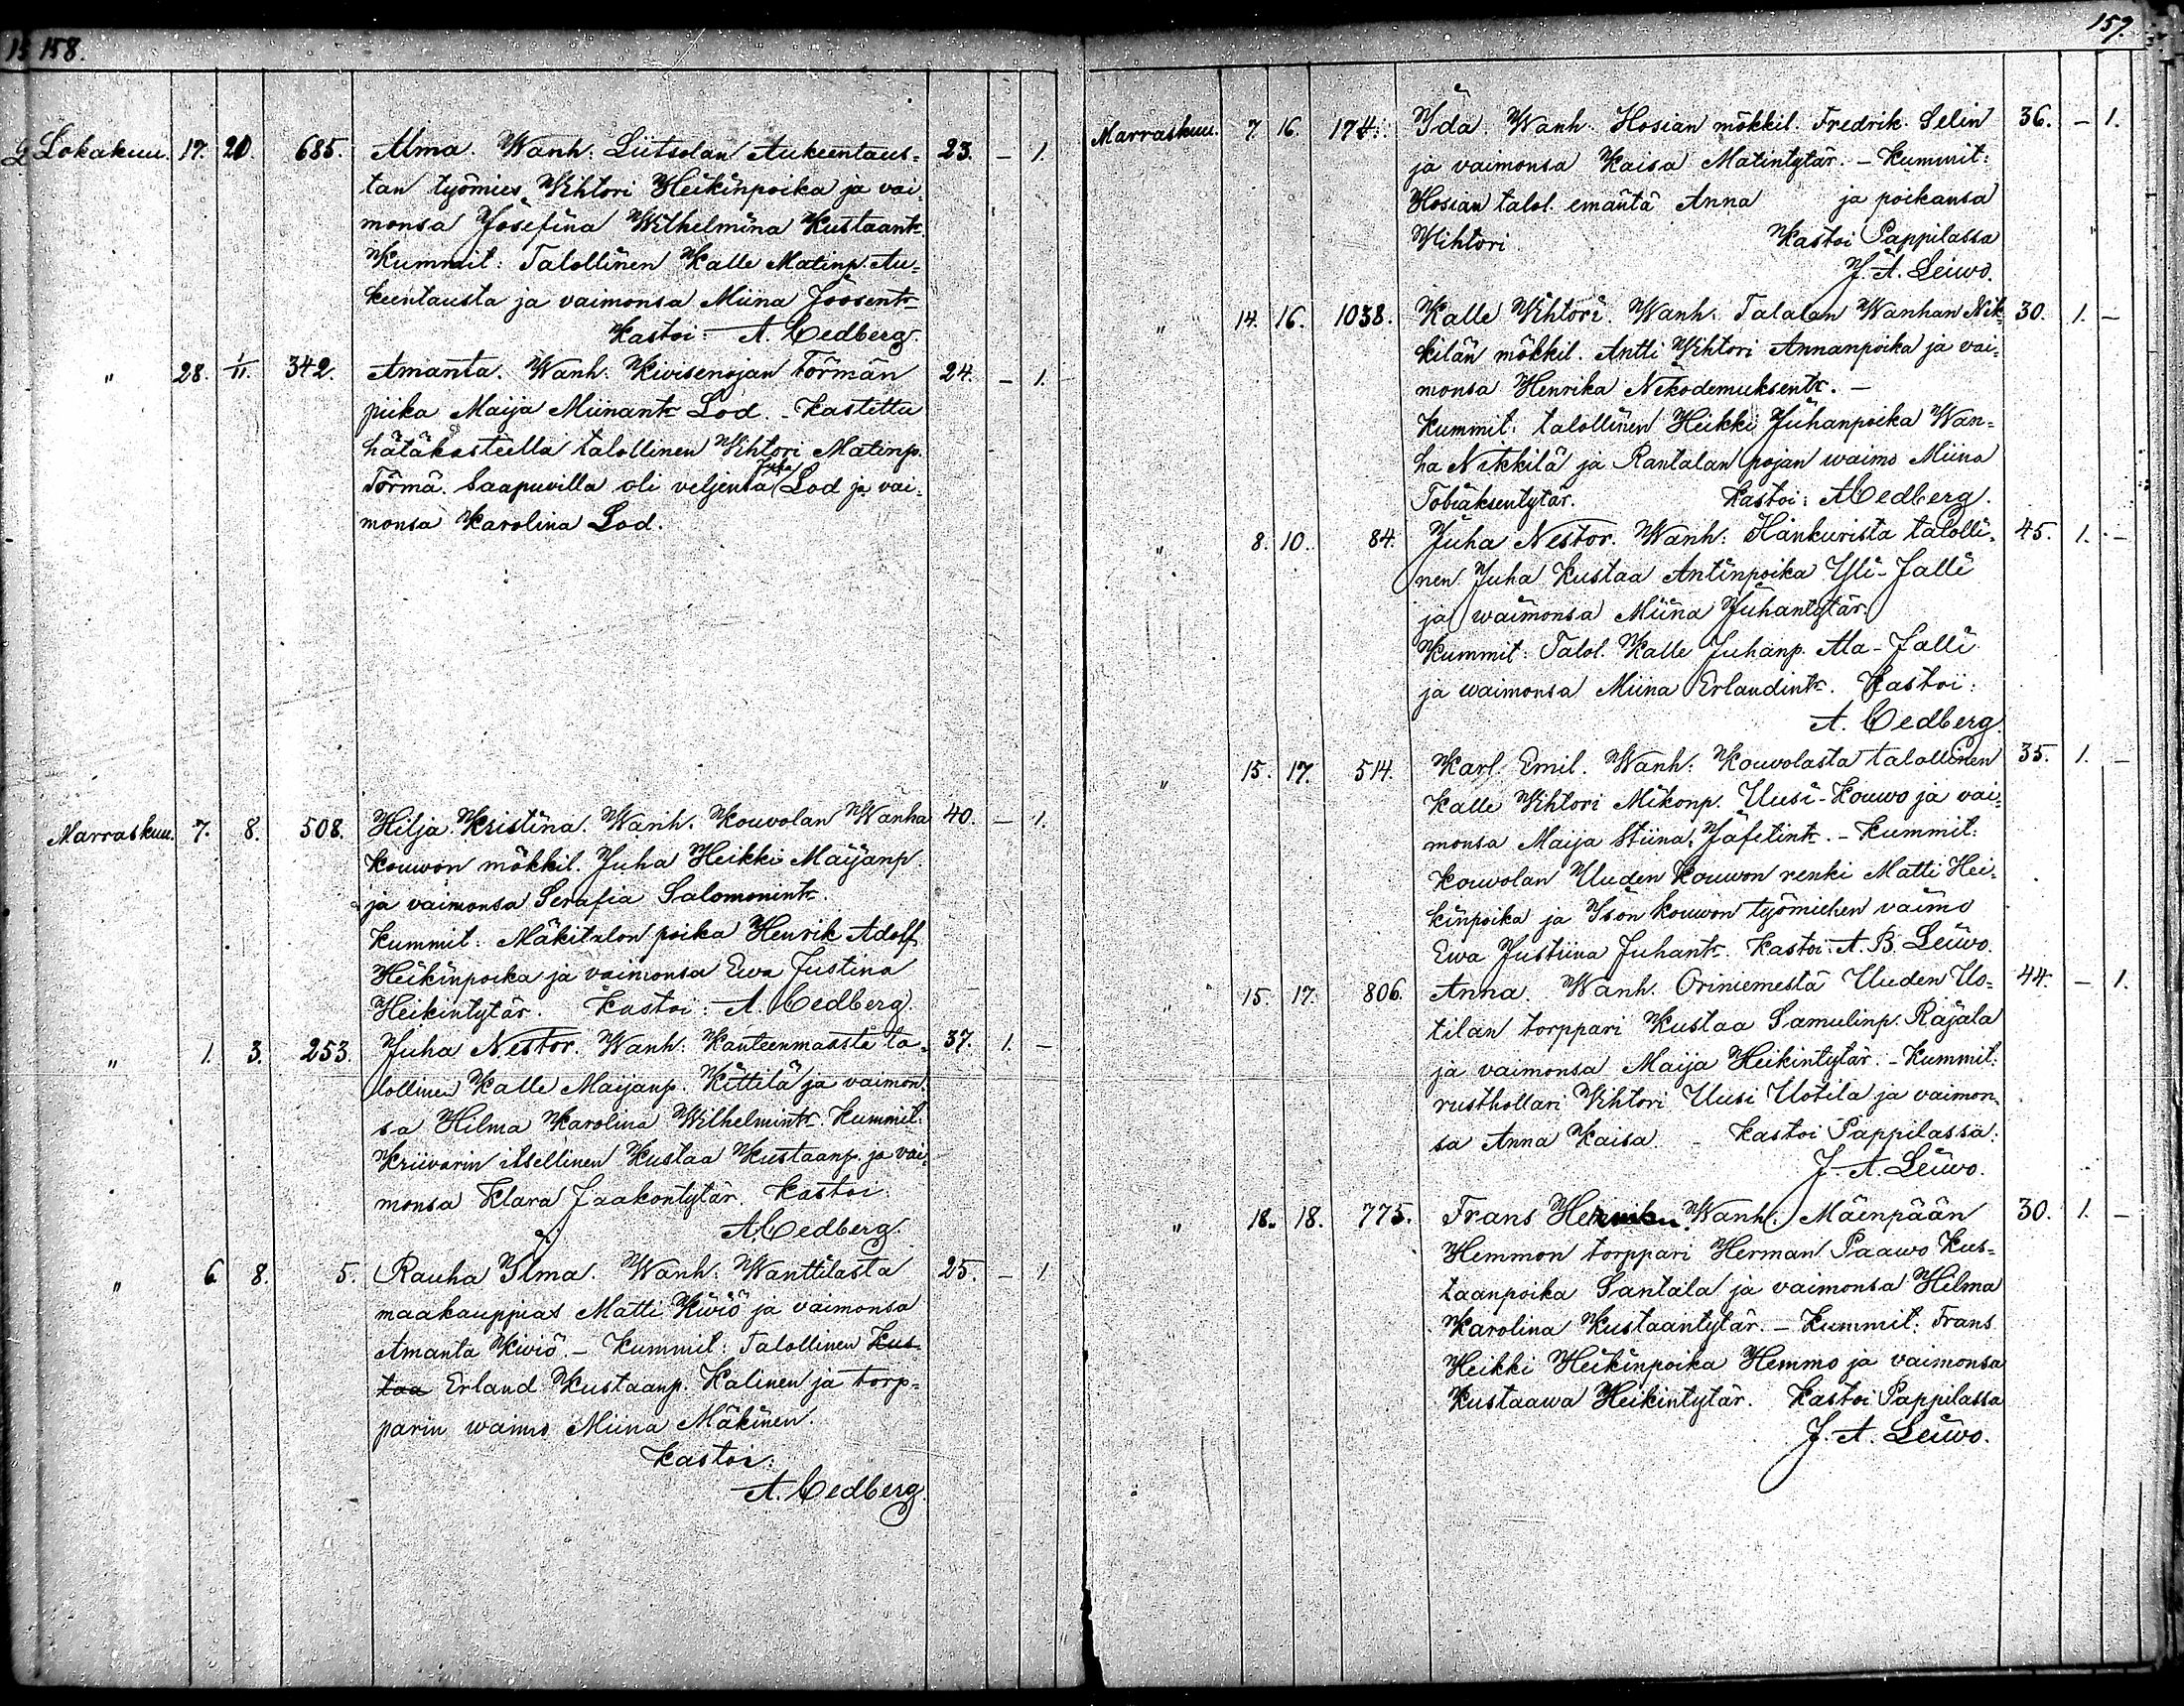 158.
Lokakuu. 17. 20. 685. Alma. Wanh: Liitsolan Aukeentaus- 23. – 1.
tan työmies Wihtori Heikinpoika ja vai-
monsa Josefina Wilhelmina Kustaantr.
Kummit: Talollinen Kalle Matinp. Au-
keentausta ja vaimonsa Miina Joosentr
Kastoi: A. Cedberg.
" 28. 1/11. 342. Amanta. Wanh: Kiwisenojan Törmän 24. – 1.
piika Maija Miinantr Lod. – Kastettu
hätäkasteella talollinen Wihtori Matinp.
Juha
Törmä. Saapuvilla oli veljensä Lod ja vai-
monsa Karolina Lod.
Marraskuu. 7. 8. 508. Hilja Kristina. Wanh. Kouvolan Wanha 40. – 1.
Kouwon mökkil. Juha Heikki Maijanp.
ja vaimonsa Serafia Salomonintr.
Kummit: Mäkitalon poika Henrik Adolf
Heikinpoika ja vaimonsa Ewa Justina
Heikintytär. Kastoi: A. Cedberg.
" 1. 3. 253. Juha Nestor. Wanh: Kanteenmaasta ta- 37. 1. –
lollinen Kalle Maijanp. Kittilä ja vaimon-
sa Hilma Karolina Wilhelmintr. Kummit:
Kriivarin itsellinen Kustaa Kustaanp. ja vai-
monsa Klara Jaakontytär. Kastoi:
A. Cedberg.
" 6. 8. 5. Rauha Ilma. Wanh: Wanttilasta 25. – 1.
maakauppias Matti Kiviö ja vaimonsa
Amanta Kiviö. – Kummit: Talollinen Kus-
taa Erland Kustaanp. Kalinen ja torp-
parin waimo Miina Mäkinen.
Kastoi:
A. Cedberg.
159.
Marraskuu. 7. 16. 174. Ida. Wanh: Hosian mökkil. Fredrik Selin 36. – 1.
ja vaimonsa Kaisa Matintytär. – Kummit:
Hosian talol. emäntä Anna ja poikansa
Wihtori. Kastoi Pappilassa
J. A. Leiwo.
" 14. 16. 1038. Kalle Wihtori. Wanh. Talalan Wanhan Nik- 30. 1. –
kilän mökkil. Antti Wihtori Annanpoika ja vai-
monsa Henrika Nikodemuksentr. –
Kummit: talollinen Heikki Juhanpoika Wan-
ha Nikkilä ja Rantalan pojan waimo Miina
Tobiaksentytär. Kastoi: A Cedberg.
" 8. 10. 84. Juha Nestor. Wanh: Hankurista talolli- 45. 1. –
nen Juha Kustaa Antinpoika Yli-Jalli
ja waimonsa Miina Juhantytär.
Kummit: Talol. Kalle Juhanp. Ala-Jalli
ja waimonsa Miina Erlandintr. Kastoi:
A. Cedberg.
" 15. 17. 514. Karl Emil. Wanh: Kouvolasta talollinen 35. 1. –
Kalle Wihtori Mikonp. Uusi-Kouwo ja vai-
monsa Maija Stiina Jafetintr. – Kummit:
Kouvolan Uuden Kouwon renki Matti Hei-
kinpoika ja Ison Kouwon työmiehen vaimo
Ewa Justiina Juhantr. Kastoi: A. B. Leiwo.
" 15. 17. 806. Anna. Wanh. Oriniemestä Uuden Uo- 44. – 1.
tilan torppari Kustaa Samulinp. Rajala
ja vaimonsa Maija Heikintytär. – Kummit:
rusthollari Wihtori Uusi Uotila ja vaimon-
sa Anna Kaisa – Kastoi Pappilassa:
J. A. Leiwo.
" 18. 18. 775. Frans Herman. Wanh: Mäenpään 30. 1. –
Hemmon torppari Herman Paawo Kus-
taanpoika Santala ja vaimonsa Hilma
Karolina Kustaantytär. – Kummit: Frans
Heikki Heikinpoika Hemmo ja vaimonsa
Kustaawa Heikintytär. Kastoi Pappilassa
J. A. Leiwo.